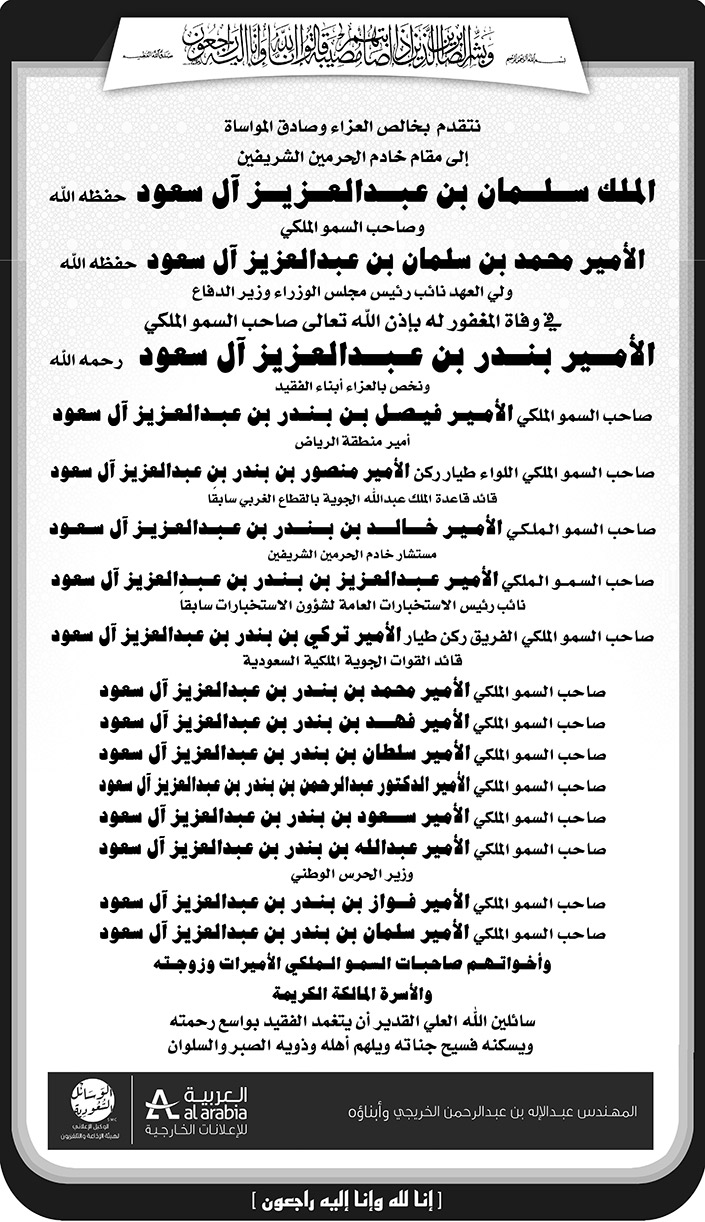 بسم الله الرحمن الرحيم
وبشر الصابرين الذين إذا أصابتهم مصيبة قالوا إنا لله وإنا إليه راجعون
صدق الله العظيم
نتقدم بخالص العزاء وصادق المواساة
إلى مقام خادم الحرمين الشريفين
الملك سلمان بن عبدالعزيز آل سعود حفظه الله
وصاحب السمو الملكي
الأمير محمد بن سلمان بن عبدالعزيز آل سعود حفظه الله
ولي العهد نائب رئيس مجلس الوزراء وزير الدفاع
في وفاة المغفور له بإذن الله تعالى صاحب السمو الملكي
الأمير بندر بن عبدالعزيز آل سعود رحمه الله
ونخص بالعزاء أبناء الفقيد
صاحب السمو الملكي الأمير فيصل بن بندر بن عبدالعزيز آل سعود
أمير منطقة الرياض
صاحب السمو الملكي اللواء طيار ركن الأمير منصور بن بندر بن عبدالعزيز آل سعود
قائد قاعدة الملك عبدالله الجوية بالقطاع الغربي سابقاً
صاحب السمو الملكي الأمير خالد بن بندر بن عبدالعزيز آل سعود
مستشار خادم الحرمين الشريفين
صاحب السمو الملكي الأمير عبدالعزيز بن بندر بن عبدالعزيز آل سعود
نائب رئيس الاستخبارات العامة لشؤون الاستخبارات سابقاً
صاحب السمو الملكي الفريق ركن طيار الأمير تركي بن بندر بن عبدالعزيز آل سعود
قائد القوات الجوية الملكية السعودية
صاحب السمو الملكي الأمير محمد بن بندر بن عبدالعزيز آل سعود
صاحب السمو الملكي الأمير فهد بن بندر بن عبدالعزيز آل سعود
صاحب السمو الملكي الأمير سلطان بن بندر بن عبدالعزيز آل سعود
صاحب السمو الملكي الأمير الدكتور عبدالرحمن بن بندر بن عبدالعزيز آل سعود
صاحب السمو الملكي الأمير سعود بن بندر بن عبدالعزيز آل سعود
صاحب السمو الملكي الأمير عبدالله بن بندر بن عبدالعزيز آل سعود
وزير الحرس الوطني
صاحب السمو الملكي الأمير فواز بن بندر بن عبدالعزيز آل سعود
صاحب السمو الملكي الأمير سلمان بن بندر بن عبدالعزيز آل سعود
وأخواتهم صاحبات السمو الملكي الأميرات وزوجته
والأسرة المالكة الكريمة
سائلين الله العلي القدير أن يتغمد الفقيد بواسع رحمته
ويسكنه فسيح جناته ويلهم أهله وذويه الصبر والسلوان
المهندس عبدالإله بن عبدالرحمن الخريجي وأبناؤه
العربية
al arabia
للإعلانات الخارجية
الوسائل السعودية
الوكيل الإعلاني
لهيئة الإذاعة والتلفزيون
[ إنا لله وإنا إليه راجعون ]